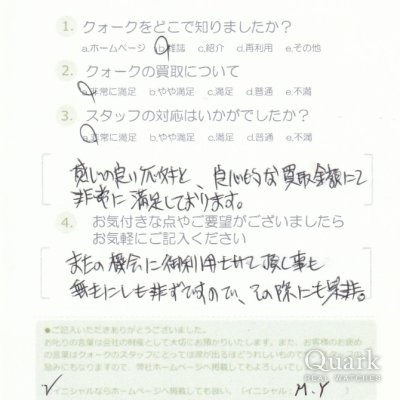 1. クォークをどこで知りましたか？
a.ホームページ b.雑誌 c.紹介 d.再利用 e.その他
2. クォークの買取について
a.非常に満足 b.やや満足 c.満足 d.普通 e.不満
3. スタッフの対応はいかがでしたか？
a.非常に満足 b.やや満足 c.満足 d.普通 e.不満
感じの良い応対と、良心的な買取金額にて
非常に満足しております。
4. お気付きな点やご要望がございましたら
お気軽にご記入ください
またの機会に御利用させて頂く事も
無きにしも非ずですので、その際にも是非。
●ご記入いただきありがとうございました。
お叱りの言葉は会社の財産として大切にお預かりいたします。また、お客様のお褒め
の言葉はクォークのスタッフにとっては涙が出るほどうれしいもので
励みにもなりますので、弊社ホームページへ掲載してもよろしいでし
イニシャルならホームページへ掲載しても良い。（イニシャル： M.Y
Quark
REAL WATCHES